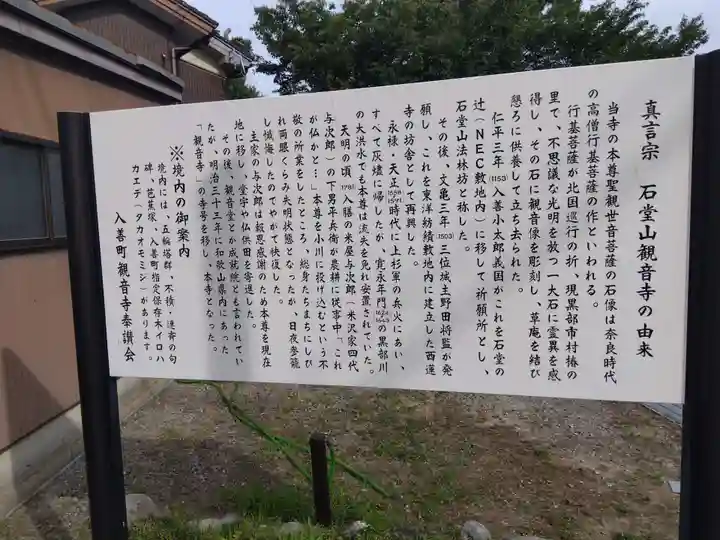 真言宗 石堂山観音寺の由来
当寺の本尊聖観世音菩薩の石像は奈良時代
の高僧行基菩薩の作といわれる。
行基菩薩が北国巡行の折、現黒部市村椿の
里で、不思議な光明を放つ一大石に霊異を感
得し、その石に観音像を彫刻し、草庵を結び
懇ろに供養して立ち去られた。
仁平三年(1153)入善小太郎義国がこれを石堂の
辻(NEC敷地内)に移して祈願所とし、
石堂山法林坊と称した。
その後、文亀三年(1503)三位城主野田将監が発
願し、これを東洋紡績敷地内に建立した西蓮
寺の坊舎として再興した。
永禄・天正1558~1591時代に上杉軍の兵火にあい、
すべて灰燼に帰したが、寛永年間1624~1643の黒部川
の大洪水でも本尊は流失を免れ安置されていた。
天明の頃(1781)入膳の米屋与次郎(米沢家四代
与次郎)の下男平兵衛が農耕に従事中「これ
が仏かと…」本尊を小川に投げ込むという不
敬の所業をしたところ、総身たちまちにしび
れ両眼くらみ失明状態となったが、日夜参籠
し懺悔したのでやがて快復した。
主家の与次郎は報恩感謝のため本尊を現在
地に移し、堂宇や仏供田を寄進した。
その後、観音堂とか成就院とも言われてい
たが、明治三十三年に和歌山県内にあった
「観音寺」の寺号を移し、本寺となった。
※境内の御案内
境内には、五輪塔群、不積・連斉の句
碑、芭蕉塚、入善町指定保存木イロハ
カエデ(タカオモミジ)があります。
入善町観音寺奉讃会